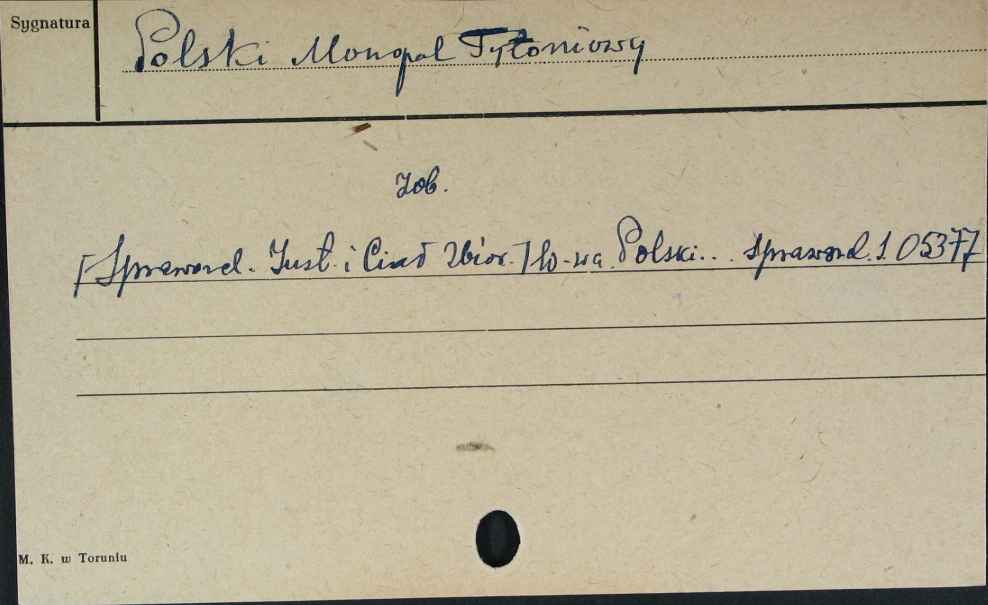 Sygnatura
Polski Monopol Tytoniowy
Zob.
[Sprawozd. Inst. i Ciał Zbior.] W-wa. Polski... Sprawozd. 1 05377
M. K. w Toruniu